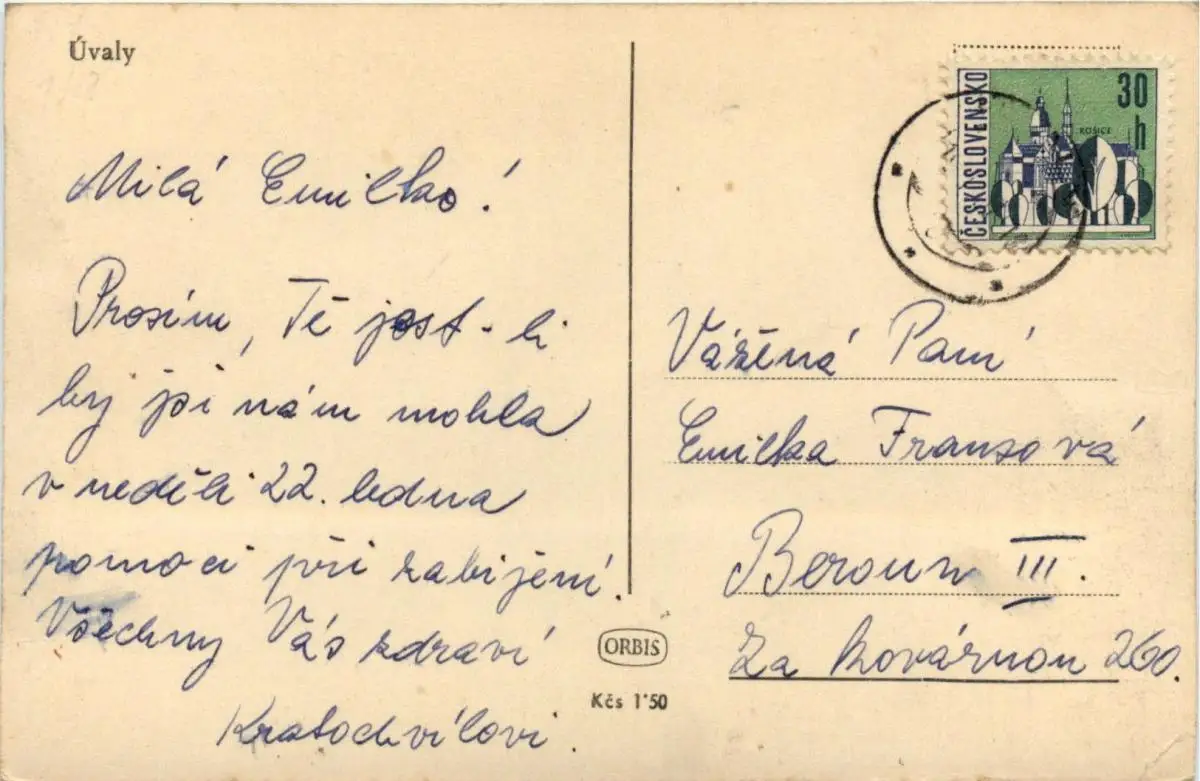 Úvaly
Milá Emilko!
Prosím, Tě jest-li
by jsi nám mohla
v neděli 22. ledna
pomoci při zabíjení.
Všechny Vás zdraví
Kratochvílovi.
ORBIS
Kčs 1'50
ČESKOSLOVENSKO
30
h
KOŠICE
Vážená Paní
Emilka Fransová
Beroun III.
Za Kovárnou 260.